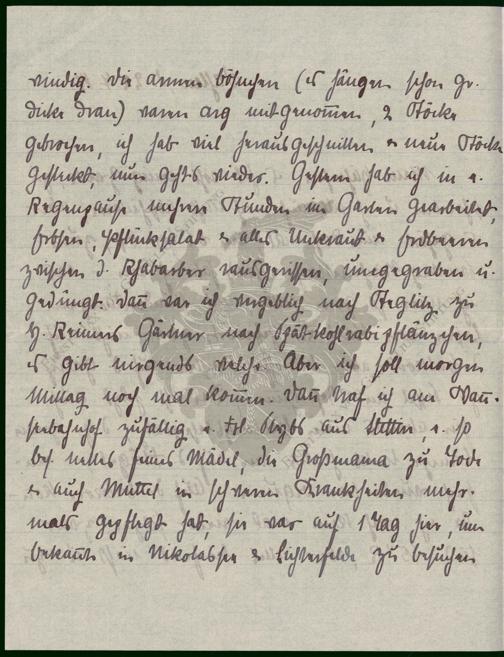 windig. Die armen böhnchen (es hängen schon ge-
dicke dran) waren arg mitgenom̄en, 2 Stöcke
gebrochen, ich hab viel herausgeschnitten & neue Stöcke
gesteckt, nun gehts wieder. Gestern hab ich in e.
Regenpause mehrere Stunden im Garten gearbeitet,
Erbsen, Pflücksalat & alles Unkraut & Erdbeeren
zwischen d. Rhabarber rausgerissen, umgegraben u.
gedüngt. Dan̄ war ich vergeblich nach Steglitz zu
H. Reiners Gärtner nach Spät-kohlrabipflänzchen,
es gibt nirgends welche. Aber ich soll morgen
Mittag noch mal kom̄en. Dan̄ traf ich am Wan̄-
seebahnhof zufällig e. Frl. aus Stettin, e. so
bes. nettes feines Mädel, die Großmama zu Tode
& auch Muttel in schweren Krankheiten mehr-
mals gepflegt hat, sie war auf 1 Tag hier, um
bekan̄te in Nikolassee & Lichterfelde zu besuchen